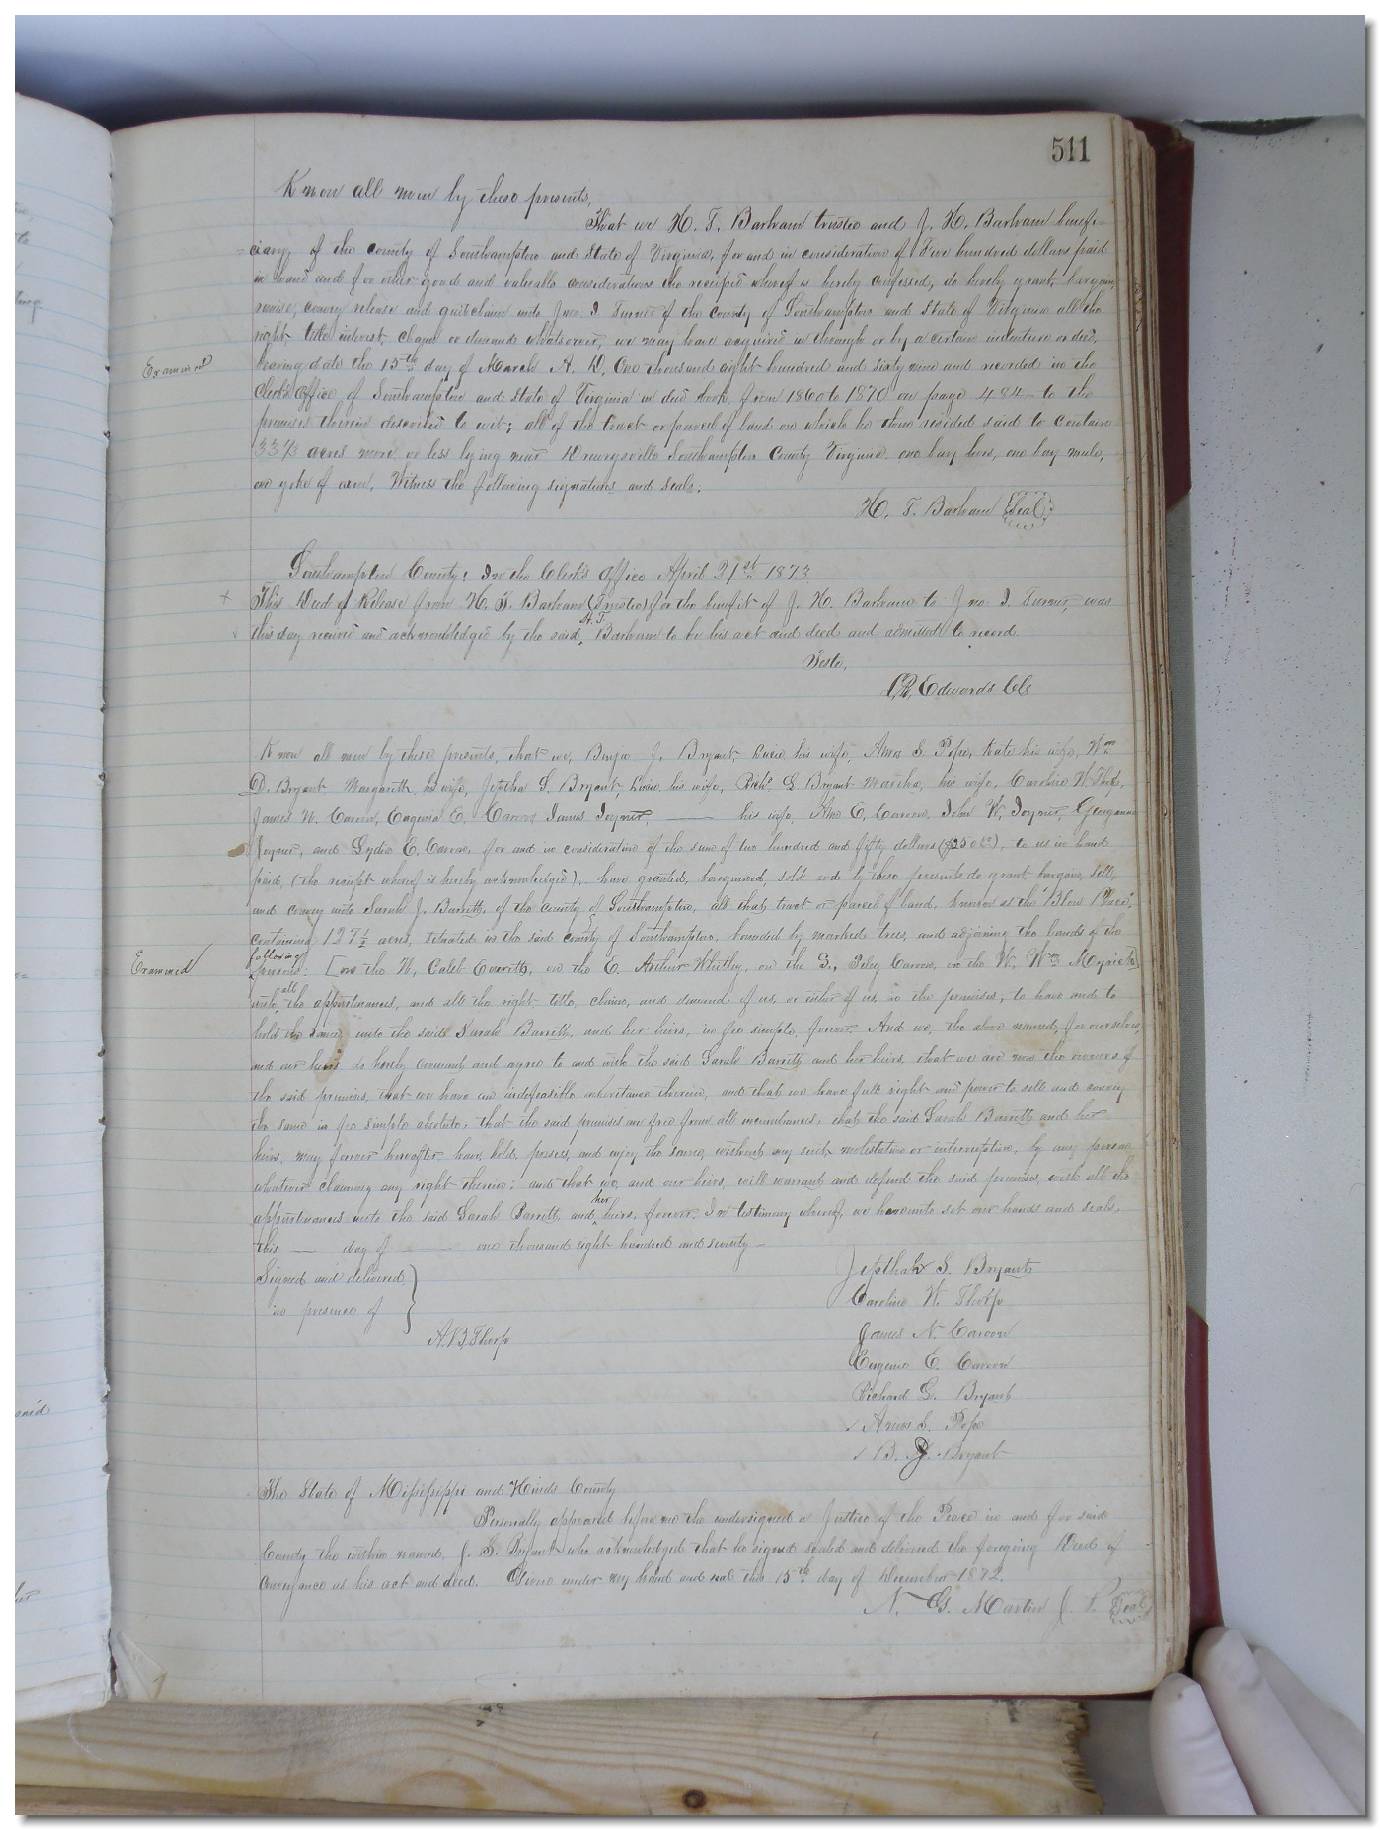 511
Know all men by these presents,
That we H. T. Barham trustee and J. H. Barham benefi-
=ciary, of the county of Southampton and State of Virginia, for and in consideration of Five hundred dollars paid
in hand and for other good and valuable considerations the receipt whereof is hereby confessed, do hereby grant, bargain,
remise, convey release and quitclaim unto Jno. I. Turner of the county of Southampton and State of Virginia all the
right title interest, claim or demand whatsoever, we may have acquired in through or by a certain indenture or deed,
Examined
bearing date the 15th day of March A. D. One thousand eight hundred and sixty nine and recorded in the
Clerk's Office of Southampton and State of Virginia in deed book from 1860 to 1870 on page 484 to the
premises therein described to wit; all of the tract or parcel of land on which he then resided said to contain
331/3 acres more or less lying near Drewrysville Southampton County Virginia. one bay horse, one bay mule,
one yoke of oxen. Witness the following signatures and seals.
H. T. Barham Seal
Southampton County: In the Clerk's Office April 21st 1873
This Deed of Release from H. T. Barham (Trustee) for the benefit of J. H. Barham to Jno. I. Turner, was
this day received and acknowledged by the said H.T. Barham to be his act and deed and admitted to record.
Teste,
L.R. Edwards Clk
Know all men by these presents, that we, Benja J. Bryant, his wife, Amos S. Pope, Kate his wife, Wm
D. Bryant Margareth his wife, Jeptha S. Bryant, his wife, Richd G Bryant Martha, his wife, Caroline W. Thorp,
James N. Carson, Eugenia E. Carson James Joyner, —— his wife, Ann E. Carson, John W. Joyner, Georgianna
Joyner, and Lydia E. Carson, for and in consideration of the sum of two hundred and fifty dollars ($250.00), to us in hand
paid, (the receipt whereof is hereby acknowledged), have granted, bargained, sold and by these presents do grant bargain, sell,
and convey unto Sarah J. Barrett, of the county of Southampton, all that, tract or parcel of land, known as the "Blow Place",
containing 127½ acres, situated in the said county of Southampton, bounded by marked trees, and adjoining the lands of the
Examined
following
persons: [on the N. Caleb Everett, on the E. Arthur Whitley, on the S., Riley Carson, on the W. Wm Myrick]
with all the appurtenances, and all the right title, claim, and demand of us, or either of us, in the premises; to have and to
hold the same unto the said Sarah Barrett, and her heirs, in fee simple, forever. And we, the above named, for ourselves,
and our heirs do hereby covenant and agree to and with the said Sarah Barrett and her heirs, that we are now the owners of
the said premises, that we have an indefeasible inheritance therein, and that we have full right and power to sell and convey
the same in fee simple absolute; that the said premises are free from all incumbrances; that the said Sarah Barrett and her
heirs, may forever hereafter have, hold, possess, and enjoy the same, without any suit, molestation or interruption, by any person
whatever claiming any right therein; and that we, and our heirs, will warrant and defend the said premises, with all the
appurtenances unto the said Sarah Barrett, and her heirs, forever. In testimony whereof, we hereunto set our hands and seals,
this —— day of —— one thousand eight hundred and seventy—
Signed and delivered
in presence of
A.B. Thorp
Jepthah S. Bryant
Caroline W. Thorp
James N. Carson
Eugenia E. Carson
Richard G. Bryant
Amos S. Pope
B. J. Bryant
The State of Mississippi and Hinds County
Personally appeared before me the undersigned a Justice of the Peace in and for said
County the within named, J. S. Bryant who acknowledged that he signed sealed and delivered the foregoing Deed of
Conveyance as his act and deed. Given under my hand and seal this 15th day of December 1872.
N. G. Martin J. P. Seal
said